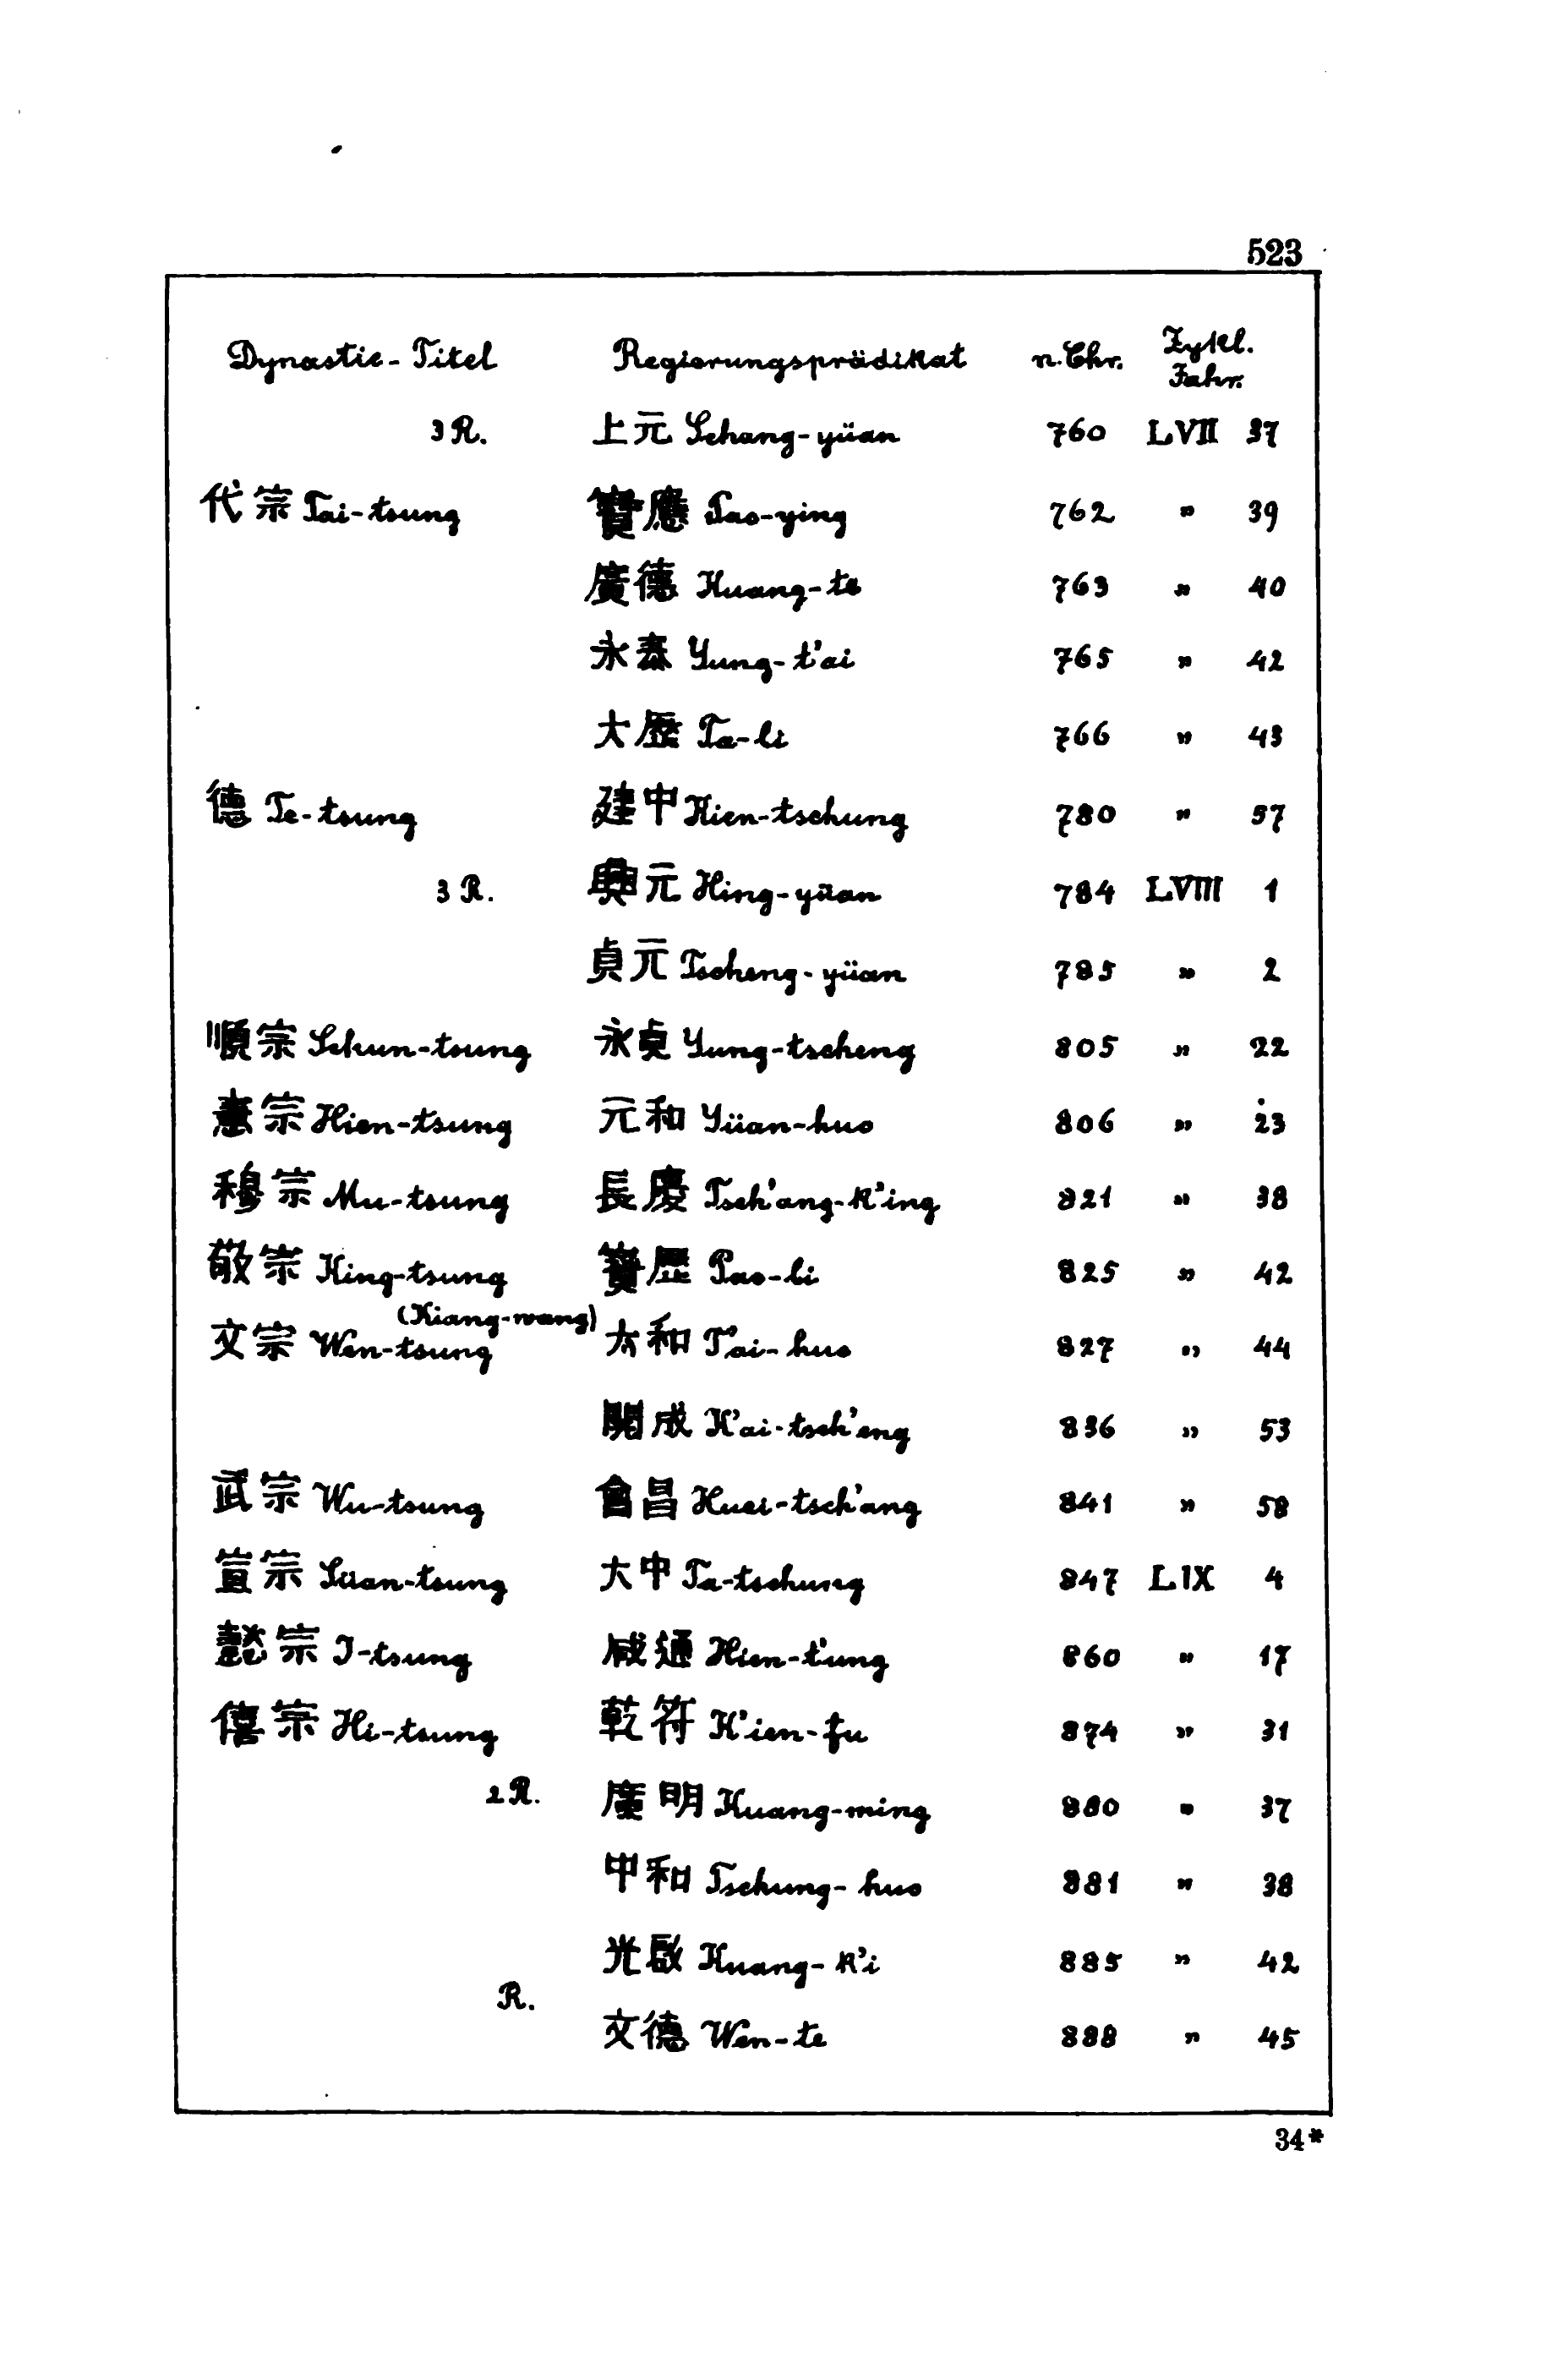 523
Dynastie-Titel Regierungsprädikat n. Chr. Zykl. Jahr.
3 R. 上元 Schang-yüan 760 LVII 37
代宗 Tai-tsung 寶應 Pao-ying 762 " 39
廣德 Kuang-te 763 " 40
永泰 Yung-t'ai 765 " 42
大歷 Ta-li 766 " 43
德 Te-tsung 建中 Kien-tschung 780 " 57
3 R. 興元 Hing-yüan 784 LVIII 1
貞元 Tscheng-yüan 785 " 2
順宗 Schun-tsung 永貞 Yung-tscheng 805 " 22
憲宗 Hien-tsung 元和 Yüan-huo 806 " 23
穆宗 Mu-tsung 長慶 Tsch'ang-k'ing 821 " 38
敬宗 King-tsung 寶歷 Pao-li 825 " 42
(Kiang-wang)
文宗 Wen-tsung 太和 T'ai-huo 827 " 44
開成 K'ai-tsch'eng 836 " 53
武宗 Wu-tsung 會昌 Huei-tsch'ang 841 " 58
宣宗 Süan-tsung 大中 Ta-tschung 847 LIX 4
懿宗 I-tsung 咸通 Hien-t'ung 860 " 17
僖宗 Hi-tsung 乾符 K'ien-fu 874 " 31
2 R. 廣明 Kuang-ming 880 " 37
中和 Tschung-huo 881 " 38
光啟 Kuang-k'i 885 " 42
R.
文德 Wen-te 888 " 45
34*